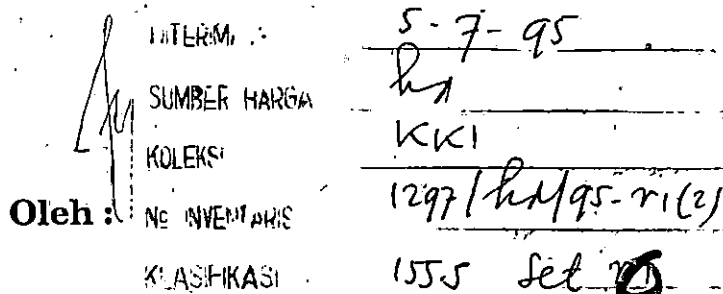 DITERIMA : 5-7-95
SUMBER HARGA hd
KOLEKSI KKI
Oleh : No INVENTARIS 1297/hd/95-r1(2)
KLASIFIKASI 155.5 Set r1